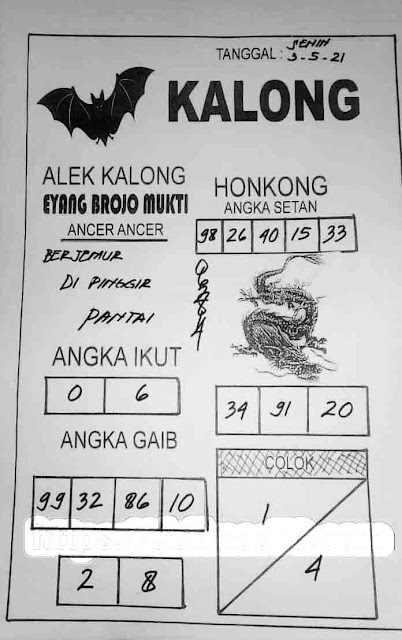 TANGGAL : SENIN
3-5-21
KALONG
ALEK KALONG
EYANG BROJO MUKTI
ANCER ANCER
BERJEMUR
DI PINGGIR
PANTAI
ANGKA IKUT
0 6
ANGKA GAIB
99 32 86 10
2 8
HONKONG
ANGKA SETAN
98 26 40 15 33
34 91 20
COLOK
1
4